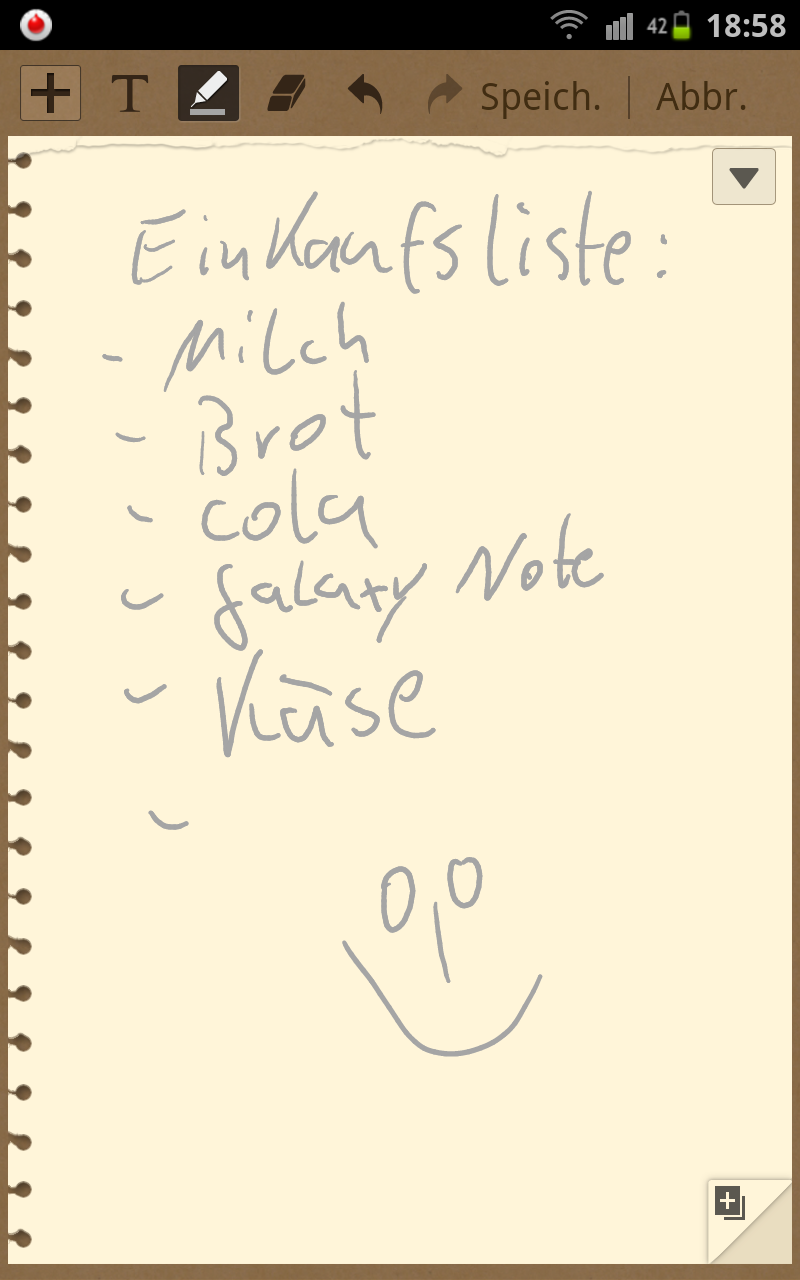 42 18:58
T Speich. Abbr.
Einkaufsliste:
- Milch
- Brot
- Cola
- Galaxy Note
- Käse
-